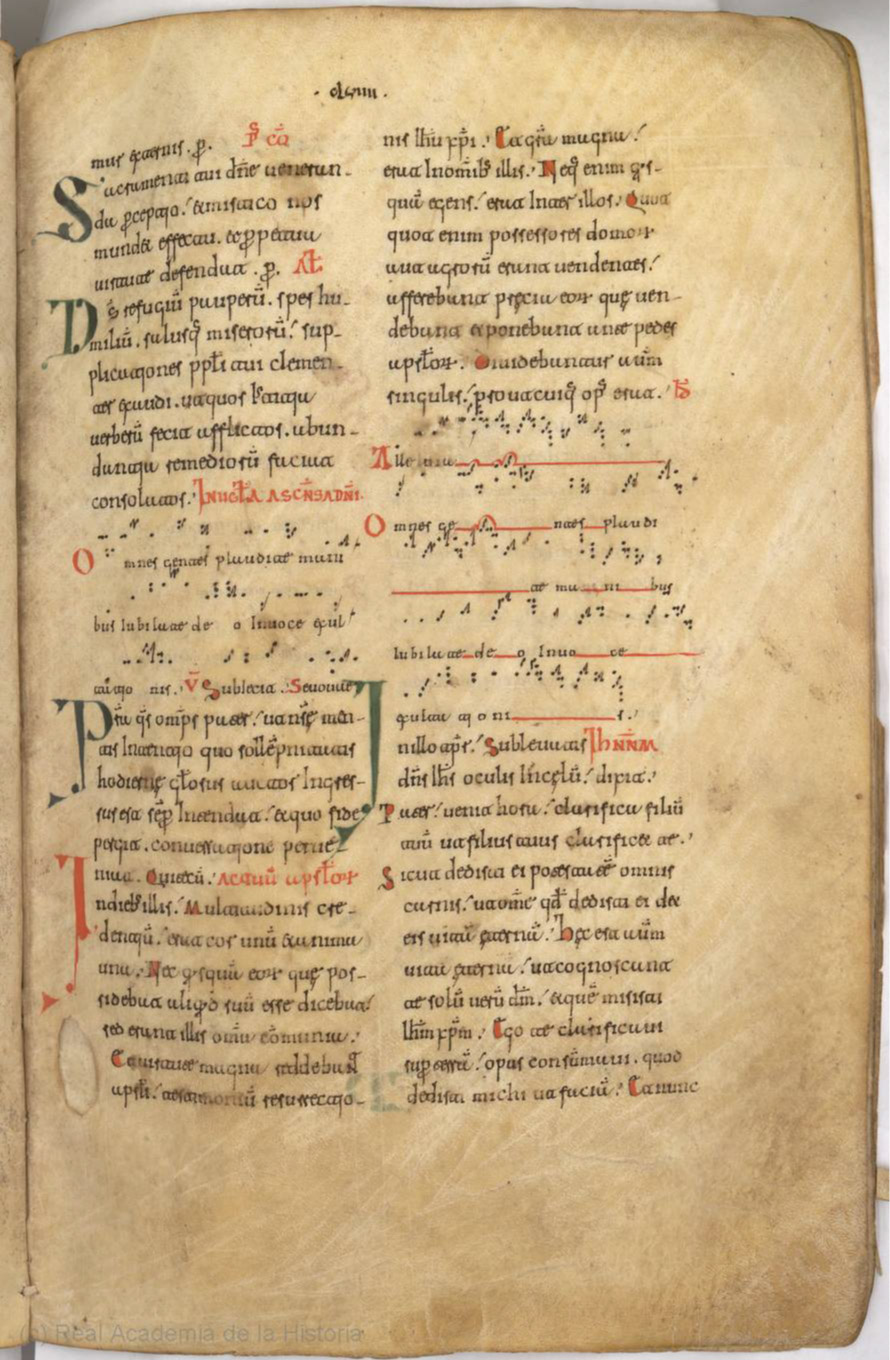 · clxiiii ·
mus eternis. ꝑ. P̄ cō
Sacramenta tui dñe ueneran-
da ꝑceptio. et mistico nos
mundet effectu. et ꝑpetua
uirtute defendat. ꝑ. Al̄
Ds̄ refugiū pauperū. spes hu-
miliū. salusq̄ miserorū. sup-
plicationes ppl̄i tui clemen-
ter exaudi. ut quos iustitia
uerberū fecit afflictos. abun-
dantia remediorū faciat
consolatos. IN UIGL̄A ASCENS DN̄I.
Omnes gentes plaudite mani
bus iubilate deo in uoce exul
tatio nis. V̄ Subiecit. Seuouae
Prs̄ta q̄s omp̄s pater. ut nr̄ę men-
tis intentio quo sollēpnitatis
hodiernę gl̄osus auctor ingres-
sus est sēp intendat. et quo fide
pergit. conuersatione perue-
niat. Quietū. ACTUŪ APSTL̄OꝜ
In dieb' illis. Multitudinis cre-
dentiū. erat cor unū et anima
una. Nec q̄squā eoꝝ quę pos-
sidebat aliq̄d suū esse dicebat.
sed erant illis omīa cōmunia.
Et uirtute magna reddebant
apsl̄i. testimoniū resurrectio-
nis ih̄u xp̄i. Et gr̄a magna.
erat in omīb' illis. Neq̄ enim q̄s-
quā egens. erat inter illos. Quot
quot enim possessores domoꝝ
aut agrorū erant uendentes.
afferebant pręcia eoꝝ quę uen-
debant et ponebant ante pedes
apstl̄oꝝ. Diuidebantur autm̄
singulis. prout cuiq̄ op' erat.
Alleluia
Omnes gentes plaudi
te manibus
iubilate deo in uoce
exultationis.
In illo tp̄r. Subleuatis IOHN̄M
dn̄s ih̄s oculis in cęlū. dixit.
Pater. uenit hora. clarifica filiū
tuū ut filius tuus clarificet te.
Sicut dedisti ei potestatē omnis
carnis. ut om̄e qd̄ dedisti ei det
eis uitā ęternā. Hęc est autm̄
uita ęterna. ut cognoscant
te solū uerū dm̄. et quē misisti
ih̄m xp̄m. Ego te clarificaui
sup terrā. opus consūmaui. quod
dedisti michi ut faciā. Et nunc
(c) Real Academia de la Historia